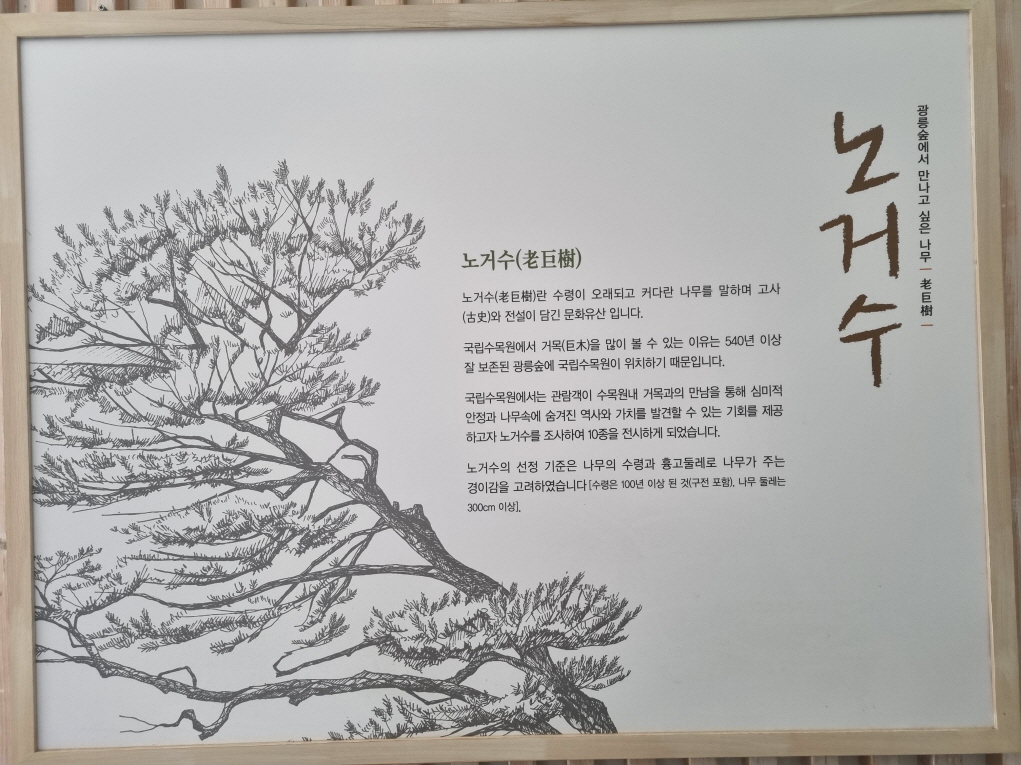 광릉숲에서 만나고 싶은 나무 | 老巨樹 |
노거수
노거수(老巨樹)
노거수(老巨樹)란 수령이 오래되고 커다란 나무를 말하며 고사
(古史)와 전설이 담긴 문화유산 입니다.
국립수목원에서 거목(巨木)을 많이 볼 수 있는 이유는 540년 이상
잘 보존된 광릉숲에 국립수목원이 위치하기 때문입니다.
국립수목원에서는 관람객이 수목원내 거목과의 만남을 통해 심미적
안정과 나무속에 숨겨진 역사와 가치를 발견할 수 있는 기회를 제공
하고자 노거수를 조사하여 10종을 전시하게 되었습니다.
노거수의 선정 기준은 나무의 수령과 흉고둘레로 나무가 주는
경이감을 고려하였습니다[수령은 100년 이상 된 것(구전 포함), 나무 둘레는
300cm 이상].